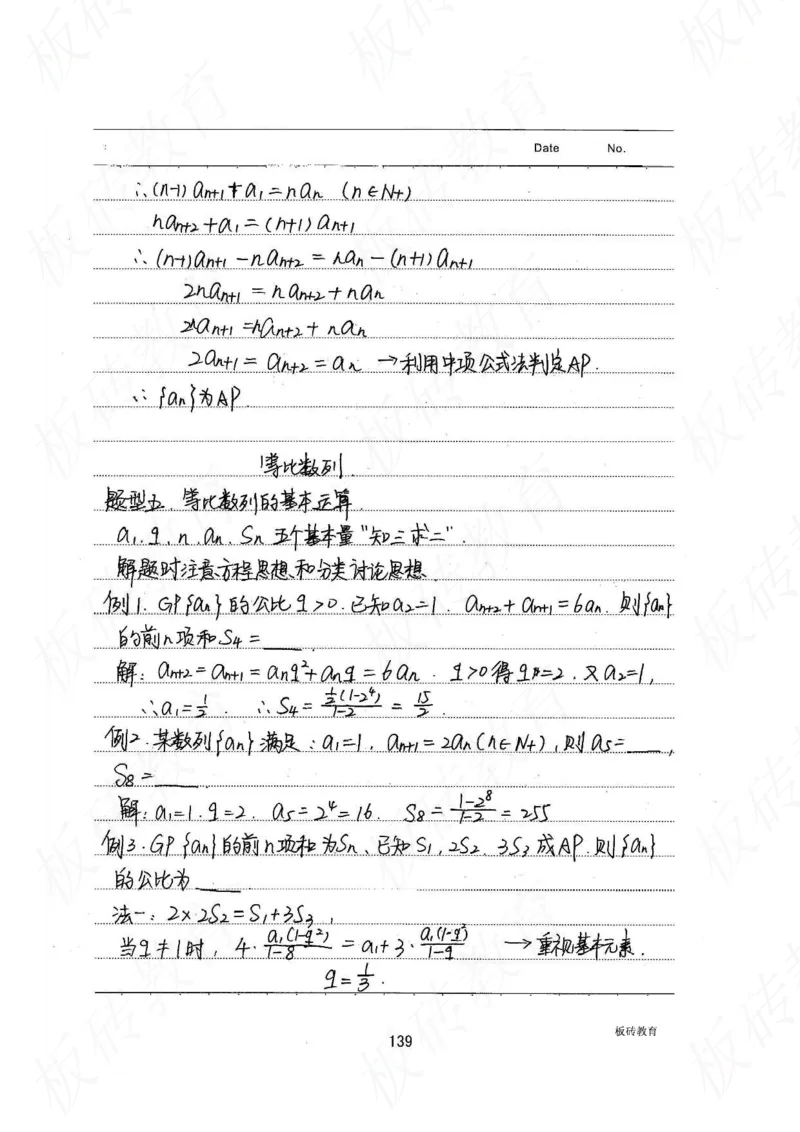 Date No.
∴(n-1)aₙ₊₁+a₁=naₙ (n∈N+)
naₙ₊₂+a₁=(n+1)aₙ₊₁
∴(n-1)aₙ₊₁-naₙ₊₂=naₙ-(n+1)aₙ₊₁
2naₙ₊₁=naₙ₊₂+naₙ
2naₙ₊₁=naₙ₊₂+naₙ
2aₙ₊₁=aₙ₊₂=aₙ →利用中项公式法判定AP.
∴{aₙ}为AP.
等比数列.
题型五、等比数列的基本运算.
a₁.q.n.aₙ.Sₙ 五个基本量"知三求二".
解题时注意方程思想和分类讨论思想.
例1.GP{aₙ}的公比q>0.已知a₂=1.aₙ₊₂+aₙ₊₁=6aₙ.则{aₙ}
的前n项和S₄=___
解:aₙ₊₂=aₙ₊₁=aₙq²+aₙq=6aₙ.q>0得q=2.又a₂=1,
∴a₁=1/2.∴S₄=½(1-2⁴)/1-2=15/2.
例2.某数列{aₙ}满足:a₁=1.aₙ₊₁=2aₙ(n∈N+),则a₅=___,
S₈=___
解:a₁=1.q=2.a₅=2⁴=16.S₈=1-2⁸/1-2=255
例3.GP{aₙ}的前n项和为Sₙ、已知S₁,2S₂、3S₃成AP.则{aₙ}
的公比为___
法一:2×2S₂=S₁+3S₃,
当q≠1时,4·a₁(1-q²)/1-8=a₁+3·a₁(1-q³)/1-q →重视基本元素.
q=1/3.
139
板砖教育